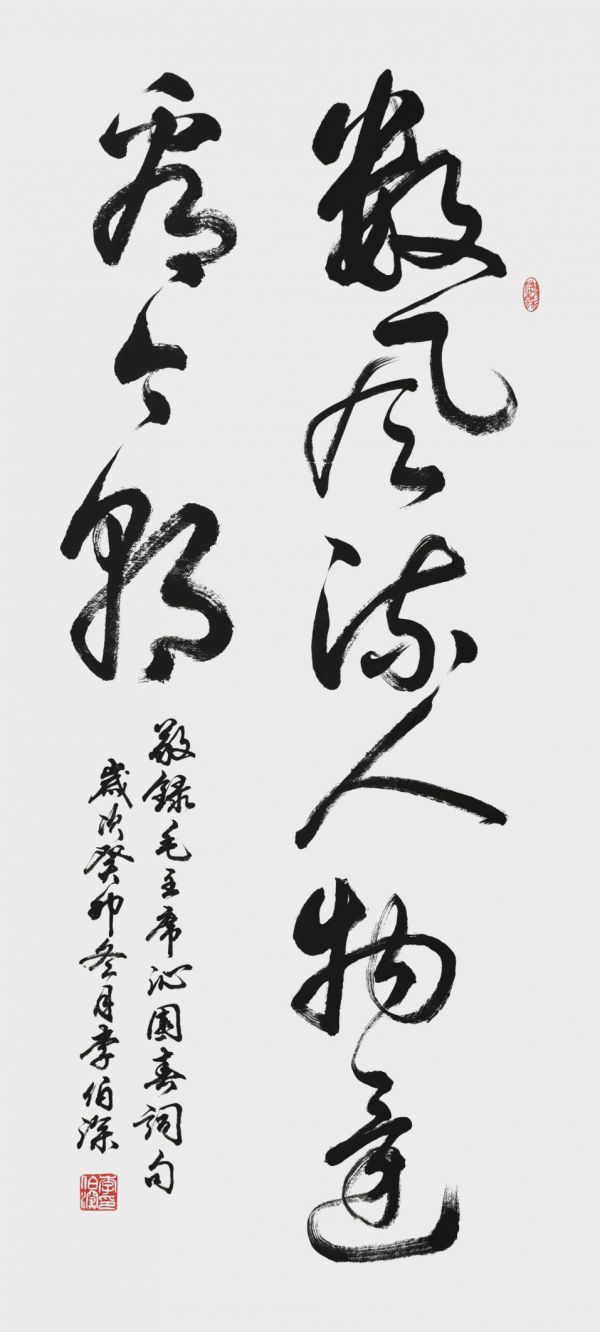 數風流人物還
看今朝
敬錄毛主席沁園春詞句
歲次癸卯冬月李伯深